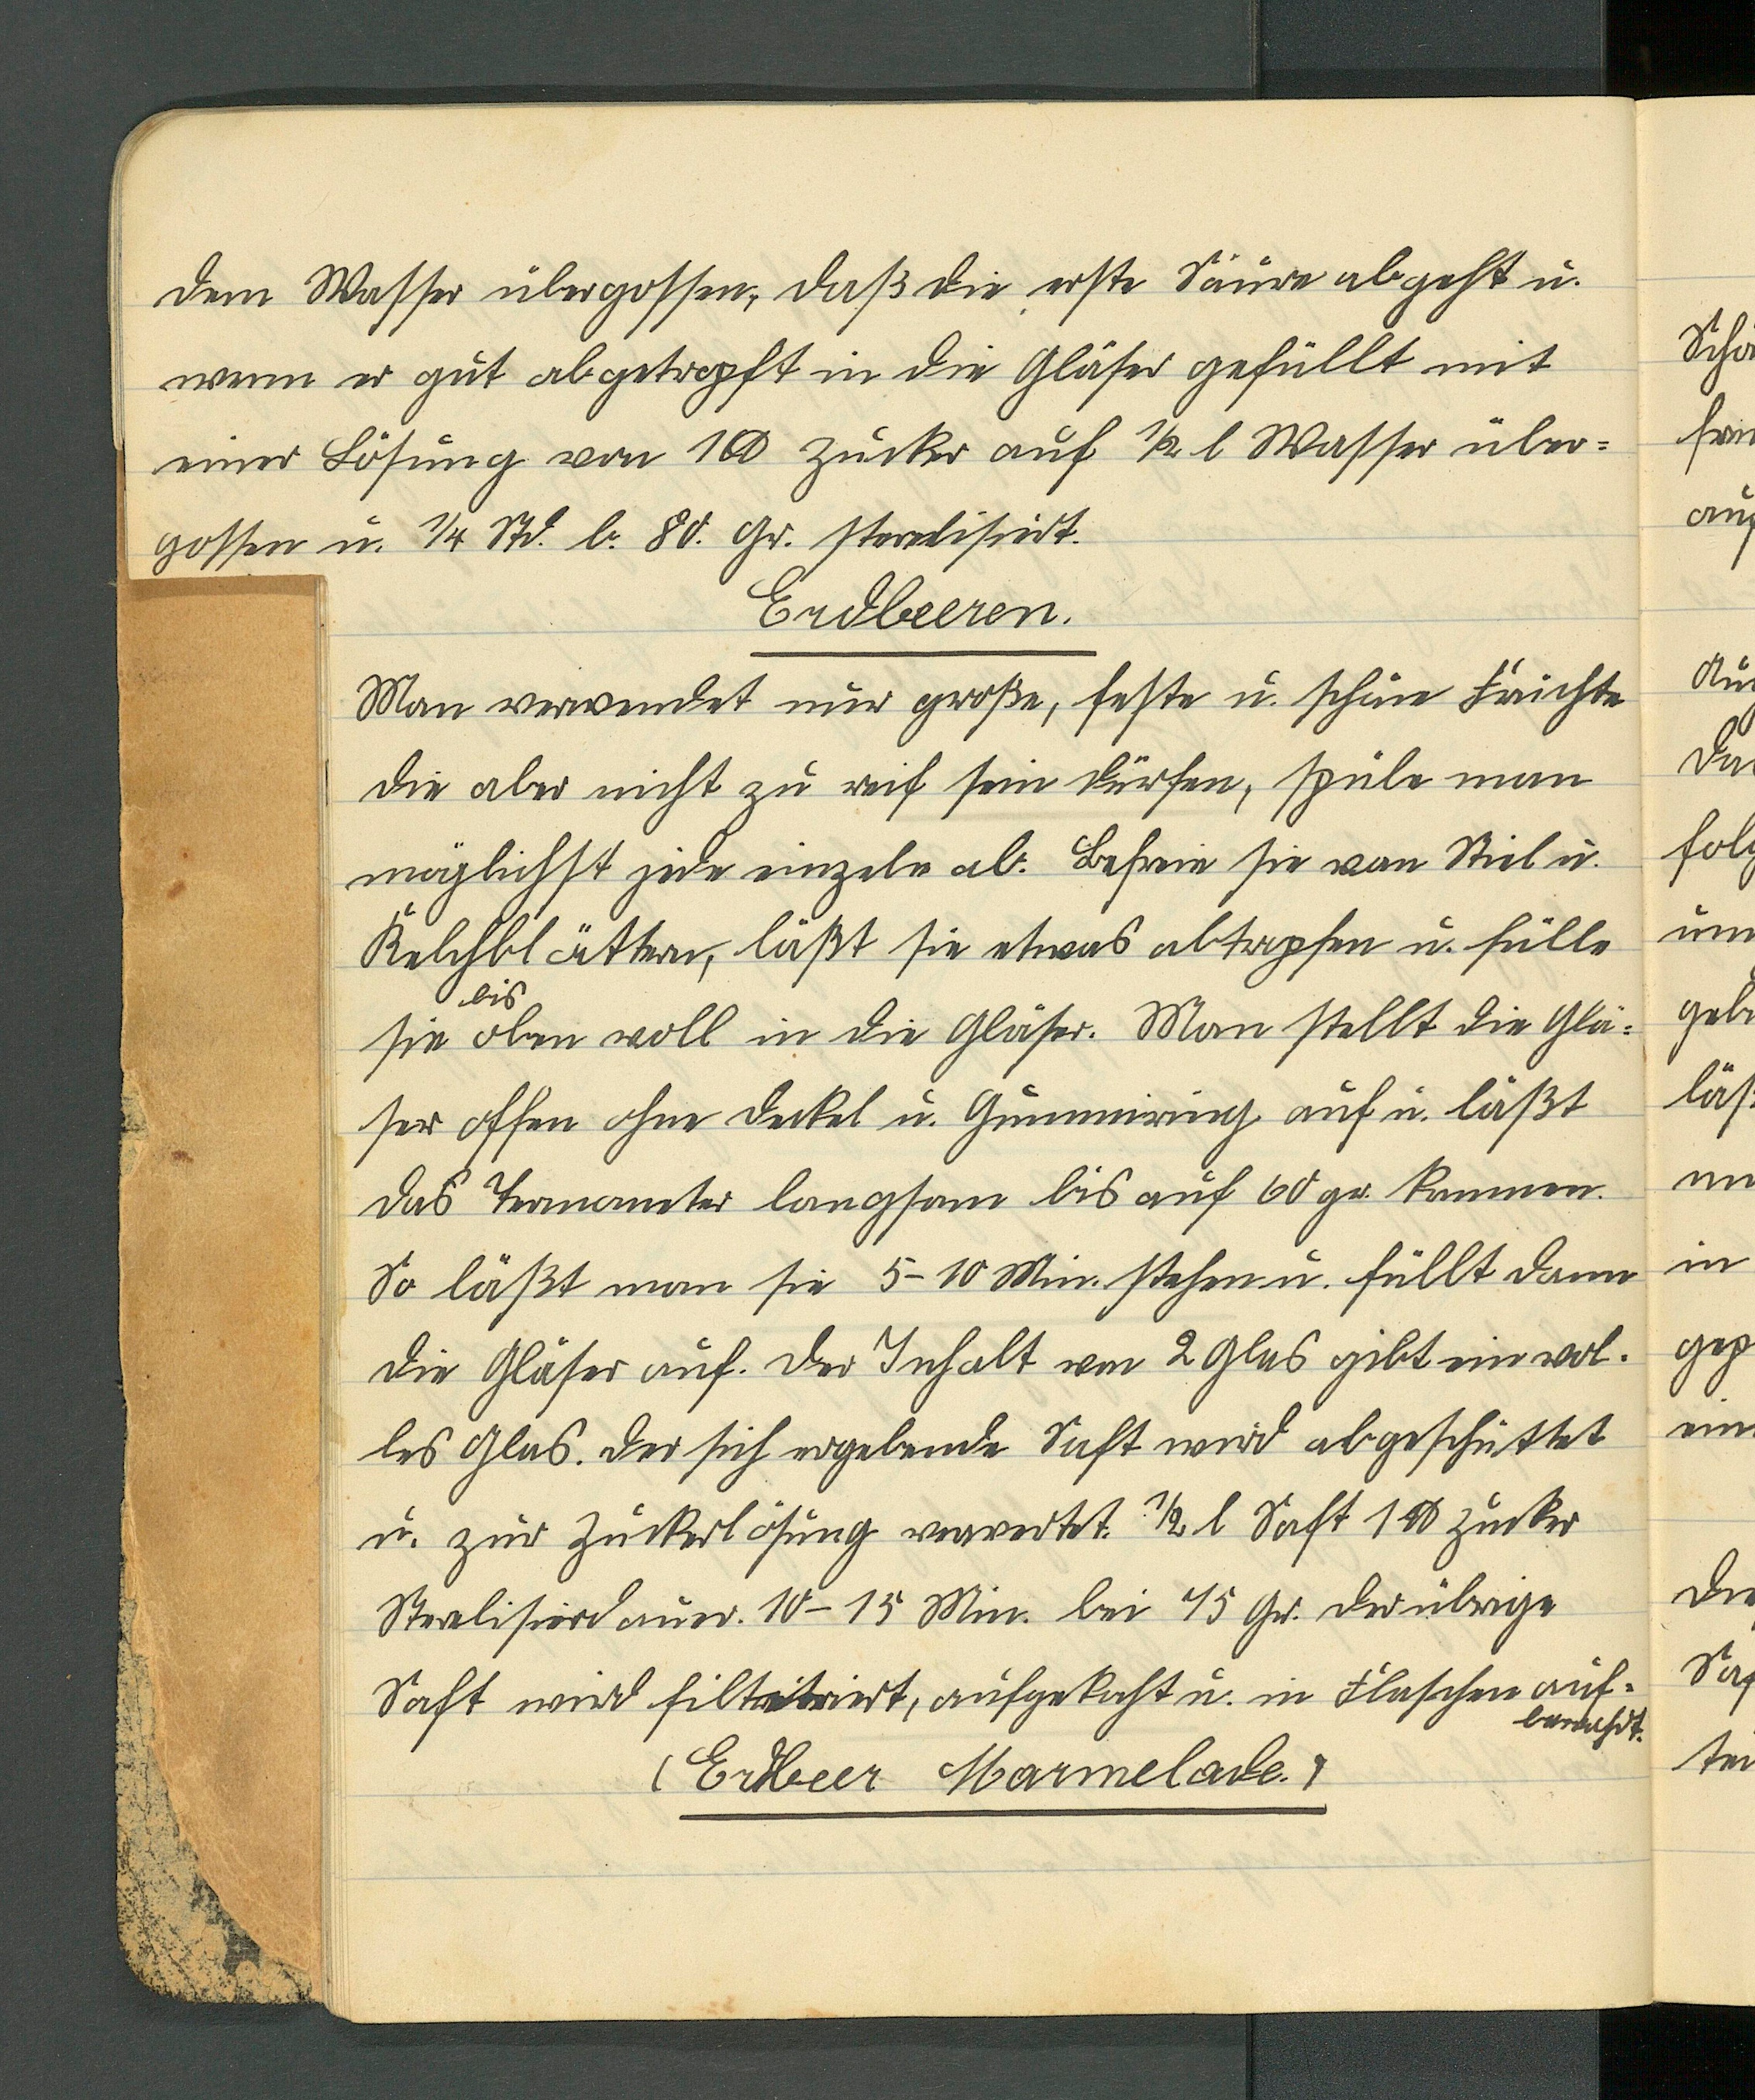 dem Wasser übergossen, daß die erste Säure abgeht u.
wenn er gut abgetropft in die Gläser gefüllt mit
einer Lösung von 1 ℔ Zucker auf ½ l Wasser über=
gossen u. ¼ Std. b. 80. Gr. sterelisiert.
Erdbeeren.
Man verwendet nur große, feste u. schöne Früchte
die aber nicht zu reif sein dürfen, spüle man
möglichst jede einzeln ab. Befreie sie von Stiel u.
Kelchblättern, läßt sie etwas abtropfen u. fülle
bis
sie oben voll in die Gläser. Man stellt die Glä=
ser offen ohne Deckel u. Gummiring auf u. läßt
das Termometer langsam bis auf 60 gr. kommen.
So läßt man sie 5-10 Min. stehen u. füllt dann
die Gläser auf. Der Inhalt von 2 Glas gibt ein vol.
les Glas. Der sich ergebende Saft wird abgeschüttet
u. zur Zuckerlösung verwertet. ½ l Saft 1 ℔ Zucker
Sterelisierdauer. 10-15 Min. bei 75 Gr. Der übrige
Saft wird filtriert, aufgekocht u. in Flaschen auf=
bewahrt.
(Erdbeer Marmelade.)